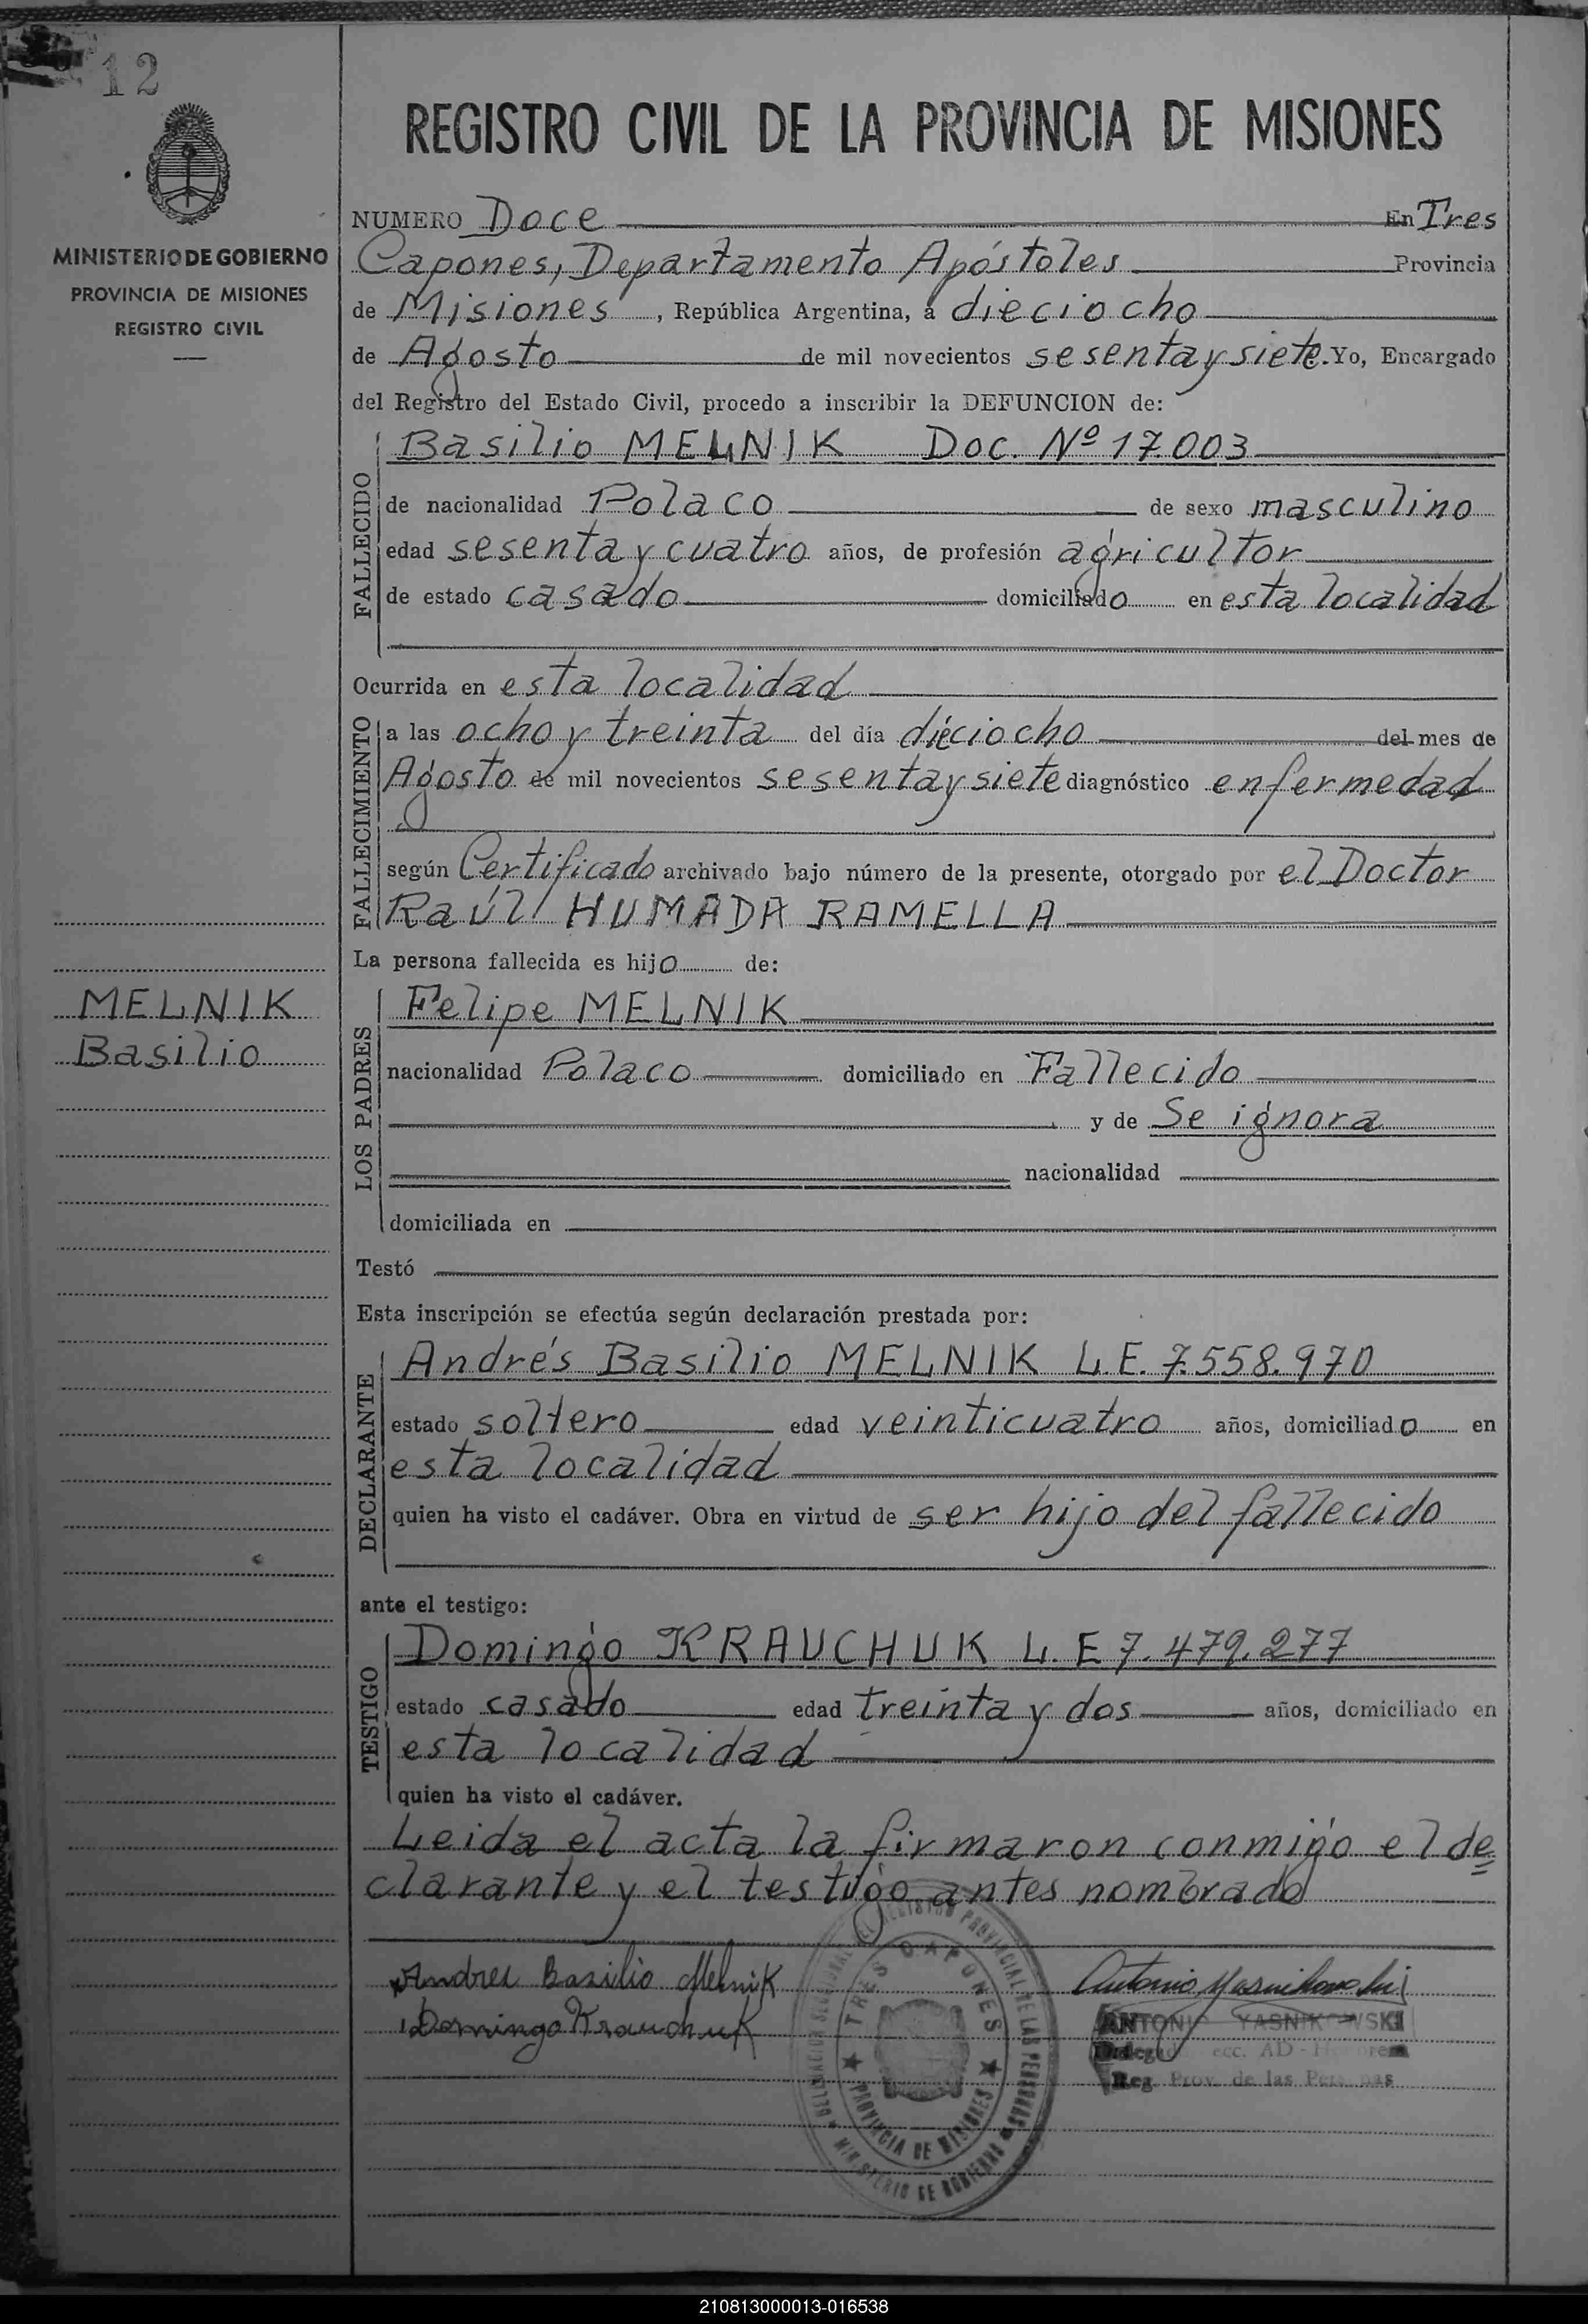 12
MINISTERIO DE GOBIERNO
PROVINCIA DE MISIONES
REGISTRO CIVIL
MELNIK
Basilio
REGISTRO CIVIL DE LA PROVINCIA DE MISIONES
NUMERO Doce En Tres
Capones, Departamento Apóstoles Provincia
de Misiones, República Argentina, a dieciocho
de Agosto de mil novecientos sesenta y siete. Yo, Encargado
del Registro del Estado Civil, procedo a inscribir la DEFUNCION de:
FALLECIDO
Basilio MELNIK Doc. Nº 17.003
de nacionalidad Polaco de sexo masculino
edad sesenta y cuatro años, de profesión agricultor
de estado casado domiciliado en esta localidad
Ocurrida en esta localidad
FALLECIMIENTO
a las ocho y treinta del día dieciocho del mes de
Agosto de mil novecientos sesenta y siete diagnóstico enfermedad
según Certificado archivado bajo número de la presente, otorgado por el Doctor
Raúl HUMADA RAMELLA
La persona fallecida es hijo de:
LOS PADRES
Felipe MELNIK
nacionalidad Polaco domiciliado en Fallecido
y de Se ignora
nacionalidad
domiciliada en
Testó
Esta inscripción se efectúa según declaración prestada por:
DECLARANTE
Andrés Basilio MELNIK L.E. 7.558.970
estado soltero edad veinticuatro años, domiciliado en
esta localidad
quien ha visto el cadáver. Obra en virtud de ser hijo del fallecido
ante el testigo:
TESTIGO
Domingo KRAUCHUK L.E 7.479.277
estado casado edad treinta y dos años, domiciliado en
esta localidad
quien ha visto el cadáver.
Leida el acta la firmaron conmigo el de
clarante y el testigo antes nombrado
Andres Basilio Melnik
Domingo Krauchuk
TRES CAPONES
PROVINCIA DE MISIONES
MINISTERIO DE GOBIERNO
Antonio Yasnikowski
ANTONIO YASNIKOWSKI
Reg. Prov. de las Personas
210813000013-016538